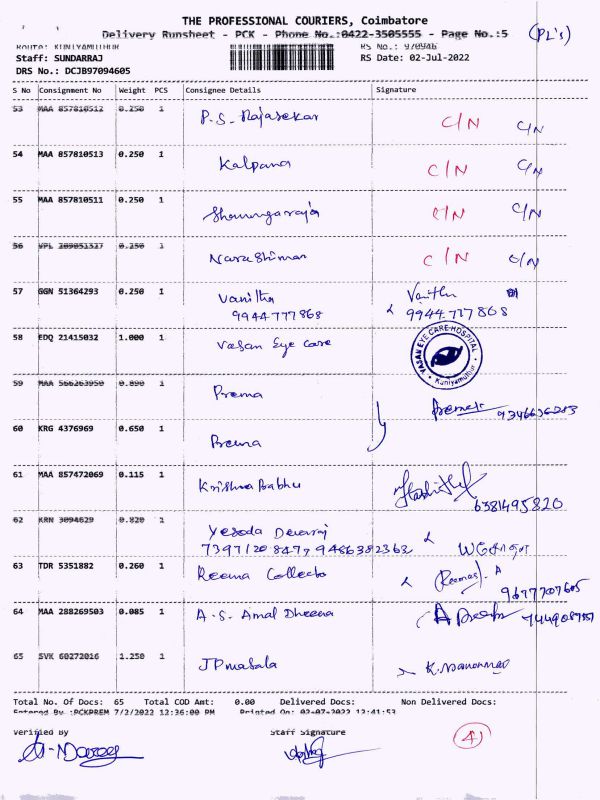 THE PROFESSIONAL COURIERS, Coimbatore
Delivery Runsheet - PCK - Phone No.:0422-3505555 - Page No.:5 (PL's)
Route: KUNIYAMUTHUR RS No.: 970946
Staff: SUNDARRAJ RS Date: 02-Jul-2022
DRS No.: DCJB97094605
S No Consignment No Weight PCS Consignee Details Signature
53 MAA 857810512 0.250 1 P.S. Rajasekar C/N C/N
54 MAA 857810513 0.250 1 Kalpana C/N C/N
55 MAA 857810511 0.250 1 C/N C/N
56 VPL 1 Narashiman C/N C/N
57 GGN 51364293 0.250 1 Vanitha Vanitha
9944777868 9944777868
58 EDQ 21415032 1.000 1 Vasan Eye Care VASAN EYE CARE HOSPITAL Kuniyamuthur
59 MAA 566263950 0.890 1 Prema
60 KRG 4376969 0.650 1 Prema
61 MAA 857472069 0.115 1 Krishna Babhu 6381495820
62 KRN 3094629 0.820 1 Yesoda Devaraj
63 TDR 5351882 0.260 1 Reema Collecto
9677707605
64 MAA 288269503 0.085 1 A.S. Amal Dheena
65 SVK 60272016 1.250 1 JP masala
Total No. Of Docs: 65 Total COD Amt: 0.00 Delivered Docs: Non Delivered Docs:
Entered By :PCKPREM 7/2/2022 12:36:00 PM Printed On: 02-07-2022 12:41:53
Verified By Staff Signature